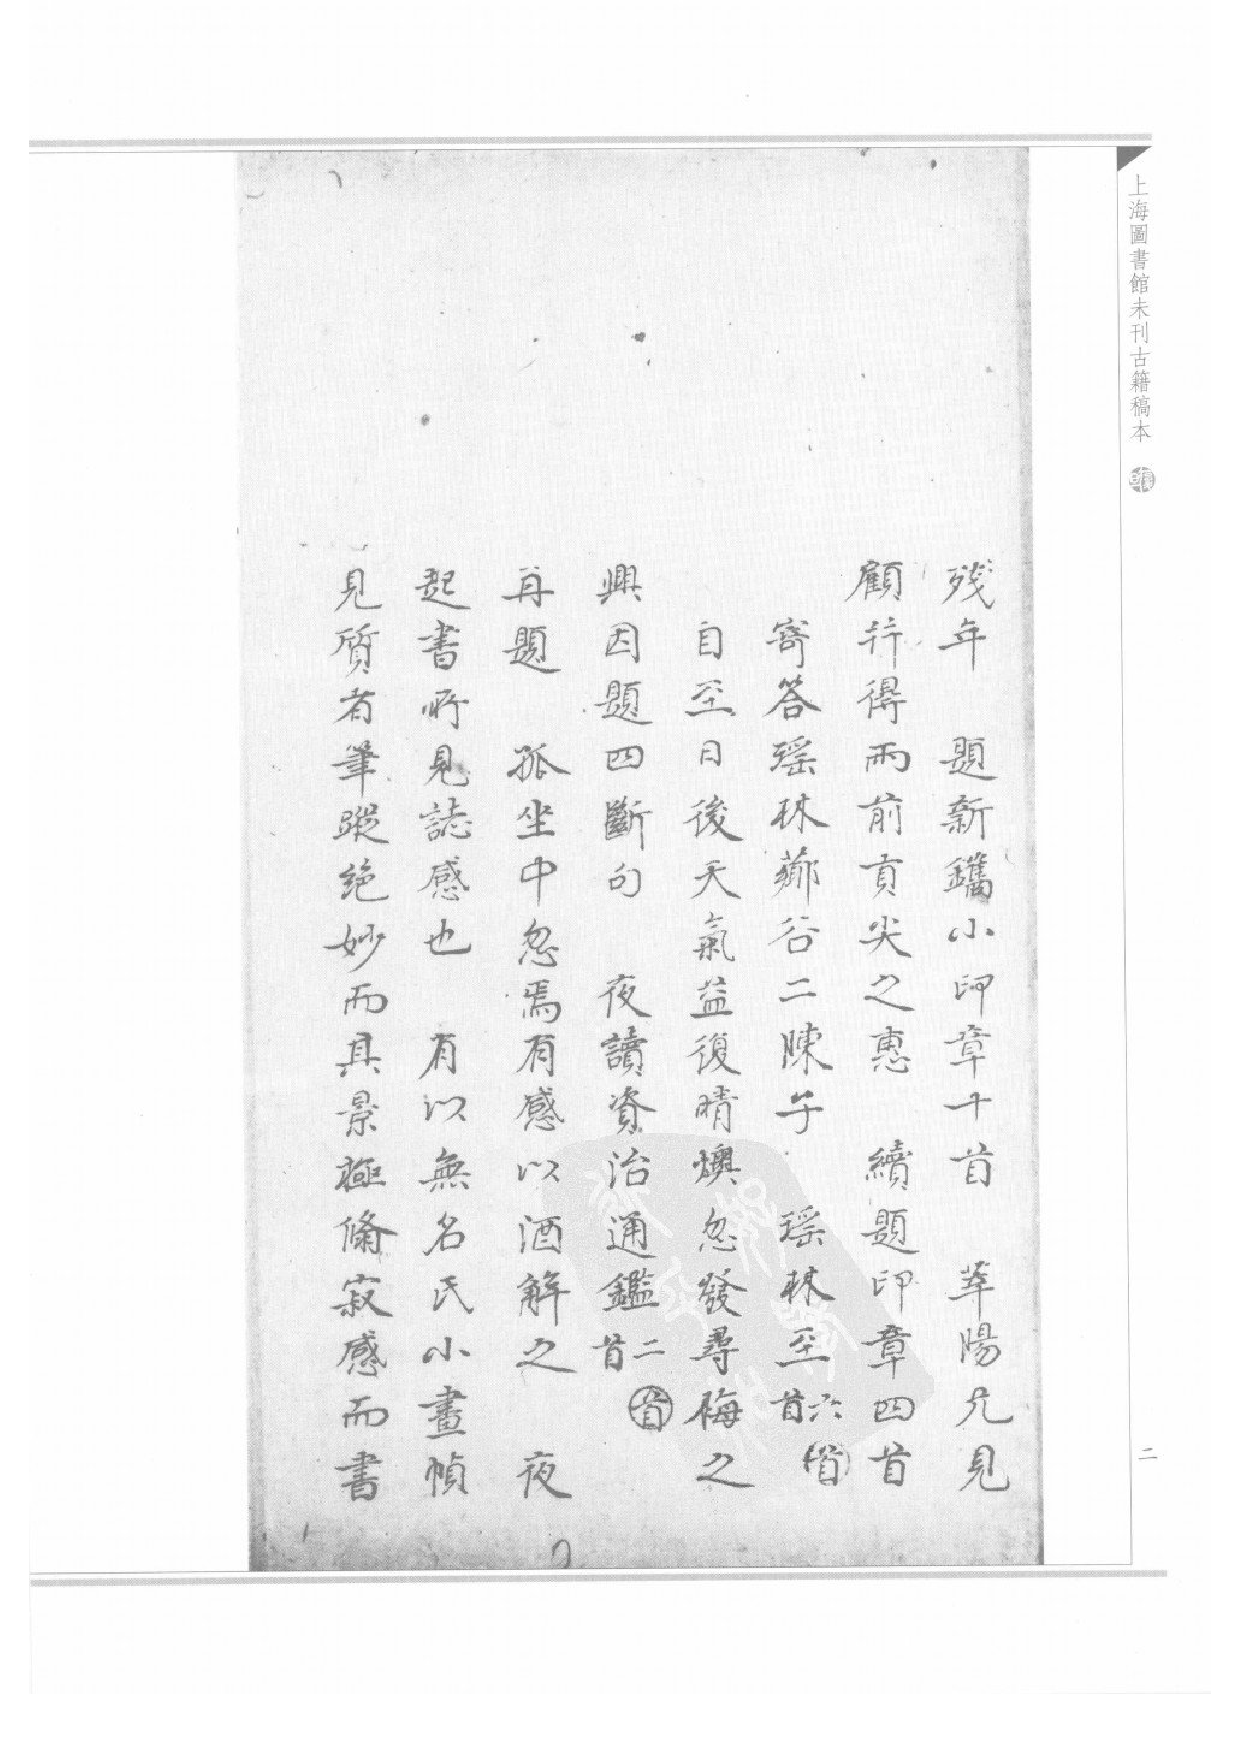 上海圖書館未刊古籍稿本
二
残年　題新鐫小印章十首　莘陽凡見
顧并得雨前貢尖之惠　續題印章四首
寄答瑶林薌谷二陳子　瑶林至六首 首
自至日後天氣益復晴燠忽發尋梅之
興因題四斷句　夜讀資治通鑑二首 首
再題　孤坐中忽焉有感以酒解之　夜
起書所見誌感也　有以無名氏小畫幀
見質者筆蹤絕妙而其景極翛寂感而書